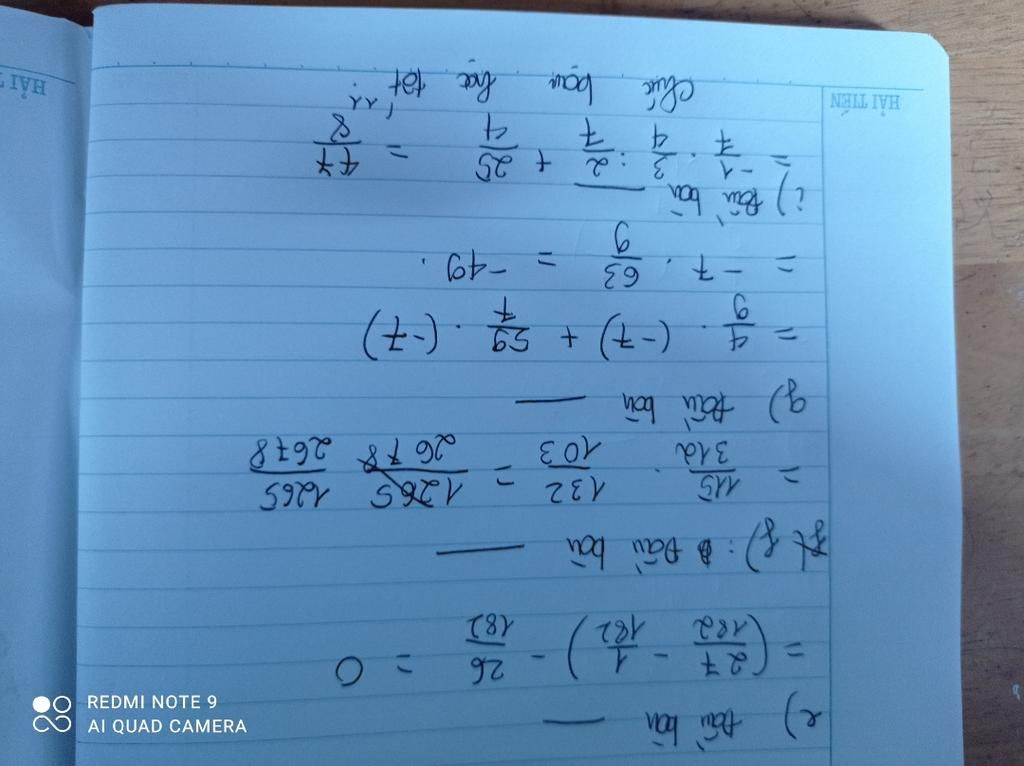 e) Đầu bài —
= (27/182 - 1/182) - 26/182 = 0
f): Đầu bài —
= 115/312 . 132/103 = 1265/2678 1265/2678
g) Đầu bài —
= 4/9 . (-7) + 59/7 . (-7)
= -7 . 63/9 = -49.
i) Đầu bài —
= -1/7 . 3/4 : 2/7 + 25/4 = 47/8
Chúc bạn học tốt
HẢI TIẾN
REDMI NOTE 9
AI QUAD CAMERA